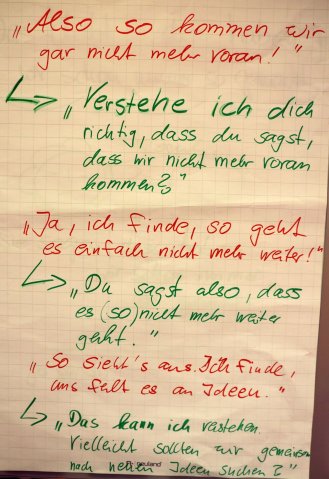 „Also so kommen wir
gar nicht mehr voran!"
„Verstehe ich dich
richtig, dass du sagst,
dass wir nicht mehr voran
kommen?"
„Ja, ich finde, so geht
es einfach nicht mehr weiter!"
„Du sagst also, dass
es (so) nicht mehr weiter
geht."
„So sieht's aus. Ich finde,
uns fehlt es an Ideen."
„Das kann ich verstehen.
Vielleicht sollten wir gemeinsam
nach neuen Ideen suchen?"
neuland